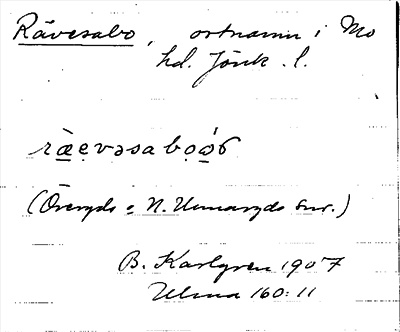 Rävesabo, ortnamn i Mo
hd. Jönk. l.
ràẹvəsabọώб
(Öreryds o N. Unnaryds snr.)
B. Karlgren 1907
Ulma 160:11